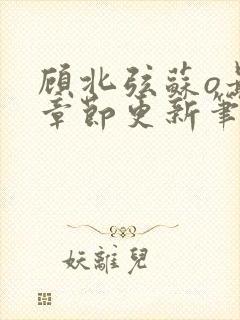 顾北弦蘇o
章節更新筆
妖離兒